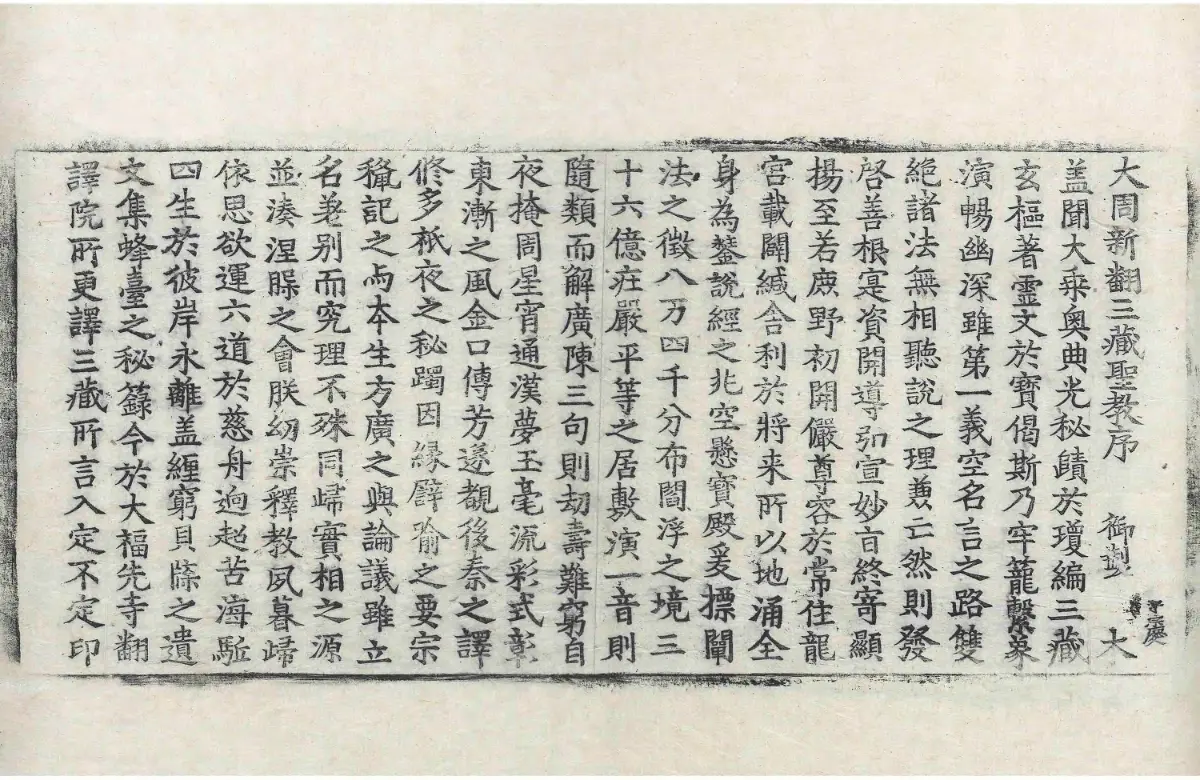 大周新翻三藏聖教序　御製　大
盖聞大乗奥典光秘賾於瓊編三藏
玄樞著霊文於寶偈斯乃牢籠繫象
演暢幽深雖第一義空名言之路雙
絶諸法無相聽説之理兼亡然則發
啓善根寔資開導弘宣妙旨終寄顯
揚至若鹿野初開儼尊容於常住龍
宮載闢緘舎利於將来所以地涌全
身為鑒說經之兆空懸寶殿爰摽闡
法之徵八万四千分布閻浮之境三
十六億莊嚴平等之居敷演一音則
隨類而解廣陳三句則劫壽難窮自
夜掩周星宵通漢夢玉毫流彩式彰
東漸之風金口傳芳遂覩後秦之譯
修多祇夜之秘躅因縁辟喻之要宗
授記之与本生方廣之與論議雖立
名差别而究理不殊同歸實相之源
並湊涅槃之會朕幼崇釋教夙暮歸
依思欲運六道於慈舟逈超苦海駈
四生於彼岸永離盖纏窮貝牒之遺
文集蜂臺之秘籙今於大福先寺翻
譯院所更譯三藏所言入定不定印